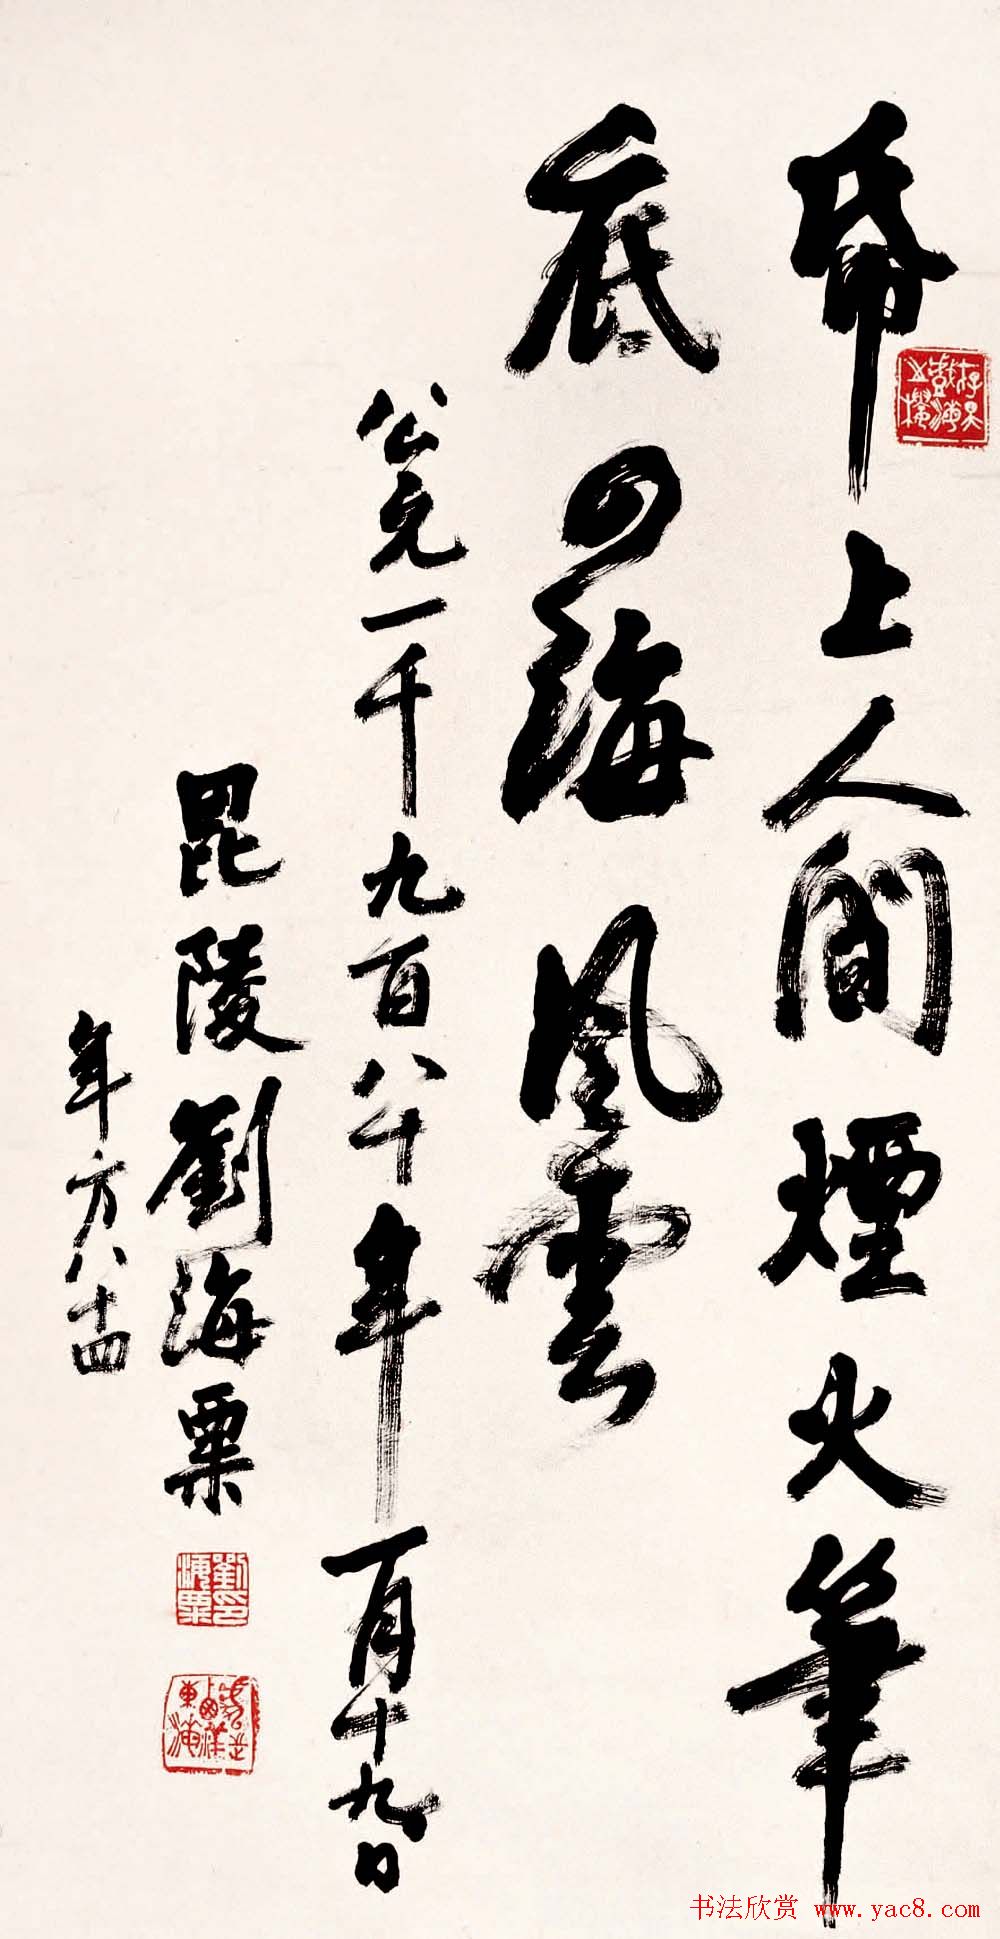 帋上人間煙火筆
底四海風雲
公元一千九百八十年一月十九日
毘陵劉海粟
年方八十四
劉印海粟
书法欣赏 www.yac8.com